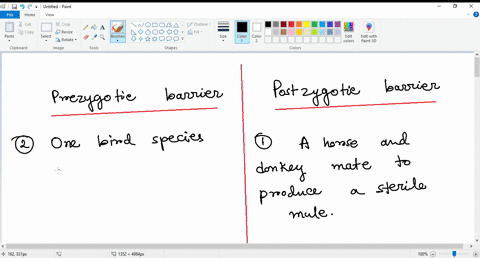 Untitled - Paint
File Home View
Paste
Clipboard
Select
Crop
Resize
Rotate
Image
Tools
Brushes
Shapes
Outline
Fill
Size
Color 1
Color 2
Colors
Edit colors
Edit with Paint 3D
Prezygotic barrier
Postzygotic barrier
② One bird species
① A horse and
donkey mate to
produce a sterile
mule.
192, 337px
1352 × 4984px
100%